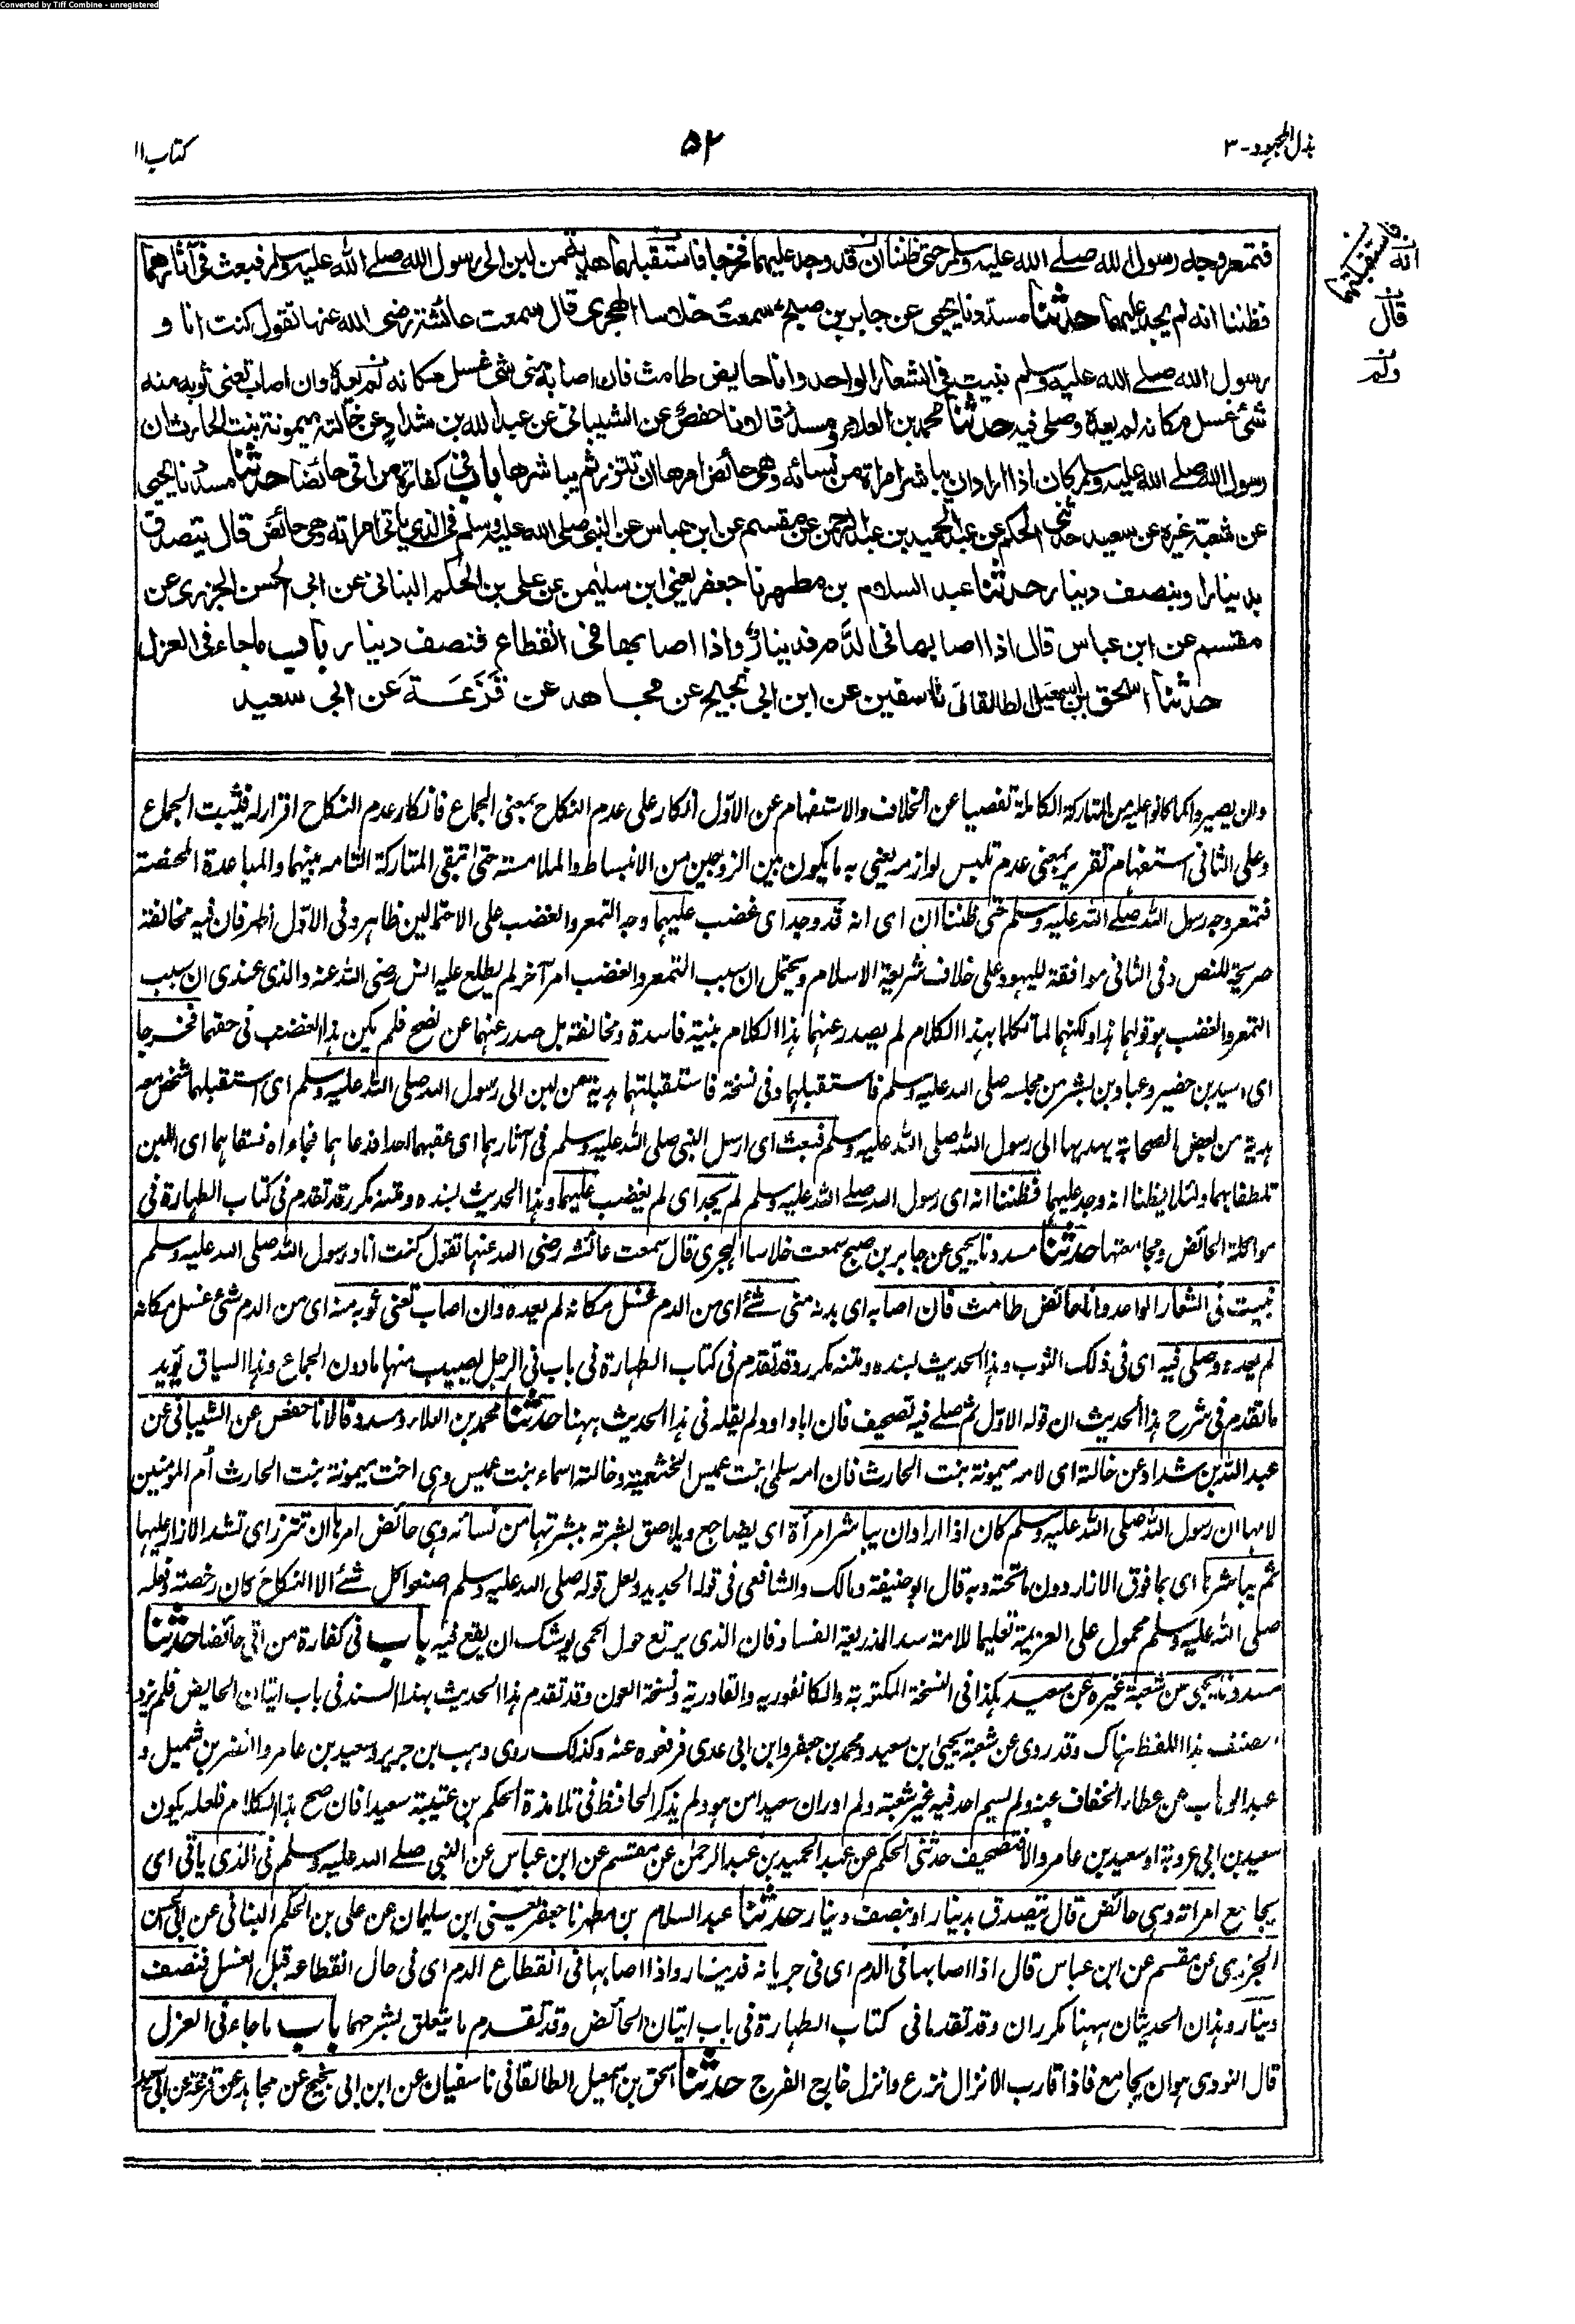 Converted by Tiff Combine - unregistered
بذل المجهود-٣
٥٢
كتاب ال
انه
فاستقبلتهما
قال
ولم
فتمعر وجه رسول الله صلى الله عليه وسلم حتى ظننا ان قد وجد عليهما فخرجا فاستقبلهما هدية من لبن الى رسول الله صلى الله عليه وسلم فبعث فى آثارهما
فظننا انه لم يجد عليهما حدثنا مسدد نا يحيى عن جابر بن صبح سمعت خلاسا الهجرى قال سمعت عائشة رضى الله عنها تقول كنت انا و
رسول الله صلى الله عليه وسلم نبيت فى الشعار الواحد وانا حايض طامث فان اصابه منى شئ غسل مكانه لم يعده وان اصاب تعنى ثوبه منه
شئ غسل مكانه لم يعده وصلى فيه حدثنا محمد بن العلاء ومسدد قالا نا حفص عن الشيبانى عن عبد الله بن شداد عن خالته ميمونة بنت الحارث ان
رسول الله صلى الله عليه وسلم كان اذا اراد ان يباشر امراة من نسائه وهى حائض امرها ان تتزر ثم يباشرها باب فى كفارة من اتى حائضا حدثنا مسدد نا يحيى
عن شعبة غيره عن سعيد حدثنى الحكم عن عبد الحميد بن عبد الرحمن عن مقسم عن ابن عباس عن النبى صلى الله عليه وسلم فى الذى ياتى امراته وهى حائض قال يتصدق
بدينار او بنصف دينار حدثنا عبد السلام بن مطهر نا جعفر يعنى ابن سليمن عن على بن الحكم البنانى عن ابى الحسن الجزرى عن
مقسم عن ابن عباس قال اذا اصابها فى الدم فدينار واذا اصابها فى انقطاع فنصف دينار باب ماجاء فى العزل
حدثنا اسحق بن اسمعيل الطالقانى نا سفين عن ابن ابى نجيح عن مجاهد عن قزعة عن ابى سعيد
وان يصيروا كما كانوا عليه من المتاركة الكاملة تفصيا عن الخلاف والاستفهام عن الاول انكار على عدم النكاح بمعنى الجماع فانكار عدم النكاح اقرار له فيثبت الجماع
وعلى الثانى استفهام تقرير بمعنى عدم تلبس لوازمه يعنى به ما يكون بين الزوجين من الانبساط والملامسة حتى تبقى المتاركة التامه بينهما والمباعدة المحضة
فتمعر وجه رسول الله صلى الله عليه وسلم حتى ظننا ان اى انه قد وجد اى غضب عليهما وجه التمعر والغضب على الاحتمالين ظاهر وفى الاول اظهر فان فيه مخالفة
صريحة للنص وفى الثانى موافقة لليهود على خلاف شريعة الاسلام ويحتمل ان سبب التمعر والغضب امر آخر لم يطلع عليه انس رضى الله عنه والذى عندى ان سبب
التمعر والغضب هو قولهما هذا ولكنهما لما تكلما بهذا الكلام لم يصدر عنهما هذا الكلام بنية فاسدة ومخالفة بل صدر عنهما عن نصح فلم يكن هذا الغضب فى حقهما فخرجا
اى اسيد بن حضير وعباد بن بشر من مجلسه صلى الله عليه وسلم فاستقبلهما وفى نسخة فاستقبلتهما هدية من لبن الى رسول الله صلى الله عليه وسلم اى استقبلهما شخص معه
هدية من بعض الصحابة يهديها الى رسول الله صلى الله عليه وسلم فبعث اى ارسل النبى صلى الله عليه وسلم فى آثارهما اى عقبهما احدا فدعاهما فجاءاه فسقاهما اى اللبن
تلطفا بهما ولئلا يظنا انه وجد عليهما فظننا انه اى رسول الله صلى الله عليه وسلم لم يجد اى لم يغضب عليهما وهذا الحديث بسنده ومتنه مكرر قد تقدم فى كتاب الطهارة فى
مواكلة الحائض ومجامعتها حدثنا مسدد نا يحيى عن جابر بن صبح سمعت خلاسا الهجرى قال سمعت عائشه رضى الله عنها تقول كنت انا ورسول الله صلى الله عليه وسلم
نبيت فى الشعار الواحد وانا حائض طامث فان اصابه اى بدنه منى شئ اى من الدم غسل مكانه لم يعده وان اصاب تعنى ثوبه منه اى من الدم شئ غسل مكانه
لم يعده وصلى فيه اى فى ذلك الثوب وهذا الحديث بسنده ومتنه مكرر وقد تقدم فى كتاب الطهارة فى باب فى الرجل يصيب منها مادون الجماع وهذا السياق يويد
ماتقدم فى شرح هذا الحديث ان قوله الاول ثم صلى فيه تصحيف فان ابا داود لم يقله فى هذا الحديث ههنا حدثنا محمد بن العلاء ومسدد قالا نا حفص عن الشيبانى عن
عبد الله بن شداد عن خالته اى لامه ميمونة بنت الحارث فان امه سلمى بنت عميس الخثعمية وخالته اسماء بنت عميس وهى اخت ميمونة بنت الحارث أم المؤمنين
لامها ان رسول الله صلى الله عليه وسلم كان اذا اراد ان يباشر امرأة اى يضاجع ويلاصق بشرته ببشرتها من نسائه وهى حائض امرها ان تتزر اى تشد الازار عليها
ثم يباشرها اى بما فوق الازار دون ما تحته وبه قال ابو حنيفة ومالك والشافعى فى قوله الجديد ولعل قوله صلى الله عليه وسلم اصنعوا كل شئ الا النكاح كان رخصة وفعله
صلى الله عليه وسلم محمول على العزيمة تعليما للامة سدا لذريعة الفساد فان الذى يرتع حول الحمى يوشك ان يقع فيه باب فى كفارة من اتى حائضا حدثنا
مسدد نا يحيى عن شعبة غيره عن سعيد هكذا فى النسخة المكتوبة والكانفورية والقادرية ونسخة العون وقد تقدم هذا الحديث بهذا السند فى باب اتيان الحايض فلم يزد
المصنف هذا اللفظ هناك وقد روى عن شعبة يحيى ابن سعيد ومحمد بن جعفر وابن ابى عدى فرفعوه عنه وكذلك روى وهب بن جرير وسعيد بن عامر والنضر بن شميل و
عبد الوهاب بن عطاء الخفاف عنه ولم يسم احد فيه غير شعبة ولم ادر ان سعيدا من هو ولم يذكر الحافظ فى تلامذة الحكم بن عتيبة سعيدا فان صح هذا الكلام فلعله يكون
سعيد بن ابى عروبة او سعيد بن عامر والا فتصحيف حدثنى الحكم عن عبد الحميد بن عبد الرحمن عن مقسم عن ابن عباس عن النبى صلى الله عليه وسلم فى الذى ياتى اى
يجامع امراته وهى حائض قال يتصدق بدينار او بنصف دينار حدثنا عبد السلام بن مطهر نا جعفر يعنى ابن سليمان عن على بن الحكم البنانى عن ابى الحسن
الجزرى عن مقسم عن ابن عباس قال اذا اصابها فى الدم اى فى جريانه فدينار واذا اصابها فى انقطاع الدم اى فى حال انقطاعه قبل الغسل فنصف
دينار وهذان الحديثان ههنا مكرران وقد تقدما فى كتاب الطهارة فى باب اتيان الحائض وقد تقدم ما يتعلق بشرحهما باب ماجاء فى العزل
قال النووى هو ان يجامع فاذا قارب الانزال نزع وانزل خارج الفرج حدثنا اسحق بن اسمعيل الطالقانى نا سفيان عن ابن ابى نجيح عن مجاهد عن قزعة عن ابى سعيد